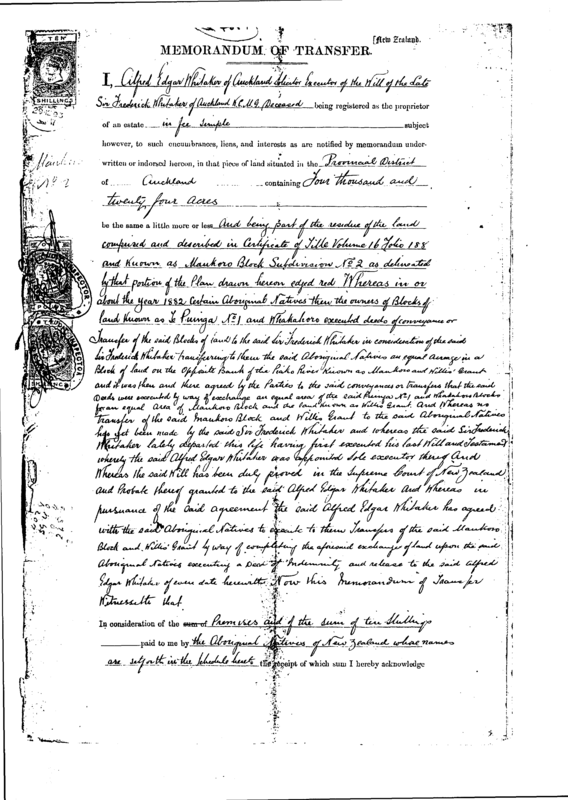 [New Zealand.
MEMORANDUM OF TRANSFER.
TEN
SHILLINGS
I, Alfred Edgar Whitaker of Auckland Solicitor Executor of the Will of the Late
Sir Frederick Whitaker of Auckland K.C.M.G. Deceased being registered as the proprietor
of an estate in fee simple subject
however, to such encumbrances, liens, and interests as are notified by memorandum under-
written or indorsed hereon, in that piece of land situated in the Provincial District
of Auckland containing Four thousand and
twenty four acres
be the same a little more or less And being part of the residue of the land
comprised and described in Certificate of Title Volume 16 Folio 188
and Known as Maukoro Block Subdivision No. 2 as delineated
by that portion of the Plan drawn hereon edged red Whereas in or
about the year 1882 Certain Aboriginal Natives then the owners of Blocks of
land known as Te Puninga No. 1 and executed deeds of conveyance or
Transfer of the said Blocks of land to the said Sir Frederick Whitaker in consideration of the said
Sir Frederick Whitaker transferring to them the said Aboriginal Natives an equal acreage in a
Block of land on the Opposite Bank of the Piako River Known as Maukoro and Willis' Grant
and it was then and there agreed by the Parties to the said conveyances or transfers that the said
Deeds were executed by way of exchange an equal area of the said No. 1 and Blocks
for an equal area of Maukoro Block and the land known as Willis' Grant And Whereas no
Transfer of the said Maukoro Block and Willis' Grant to the said Aboriginal Natives
has yet been made by the said Sir Frederick Whitaker and whereas the said Sir Frederick
Whitaker lately departed this life having first executed his last Will and Testament
whereby the said Alfred Edgar Whitaker was appointed sole executor thereof And
Whereas the said Will has been duly proved in the Supreme Court of New Zealand
and Probate thereof granted to the said Alfred Edgar Whitaker And Whereas in
pursuance of the said agreement the said Alfred Edgar Whitaker has agreed
with the said Aboriginal Natives to execute to them Transfers of the said Maukoro
Block and Willis' Grant by way of completing the aforesaid exchange of land upon the said
Aboriginal Natives executing a Deed of Indemnity and release to the said Alfred
Edgar Whitaker of even date herewith Now this Memorandum of Transfer
Witnesseth that
In consideration of the sum of Premises and of the sum of ten Shillings
paid to me by the Aboriginal Natives of New Zealand whose names
are set forth in the Schedule hereto the receipt of which sum I hereby acknowledge